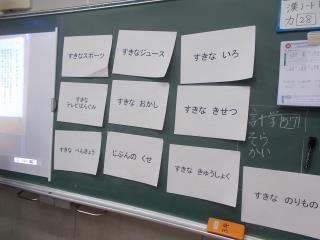 すきなスポーツ
すきなジュース
すきな いろ
すきな
テレビばんぐみ
すきな おかし
すきな きせつ
すきな べんきょう
じぶんの くせ
すきな きゅうしょく
すきな のりもの
漢ノート
力[28]
そら
かい